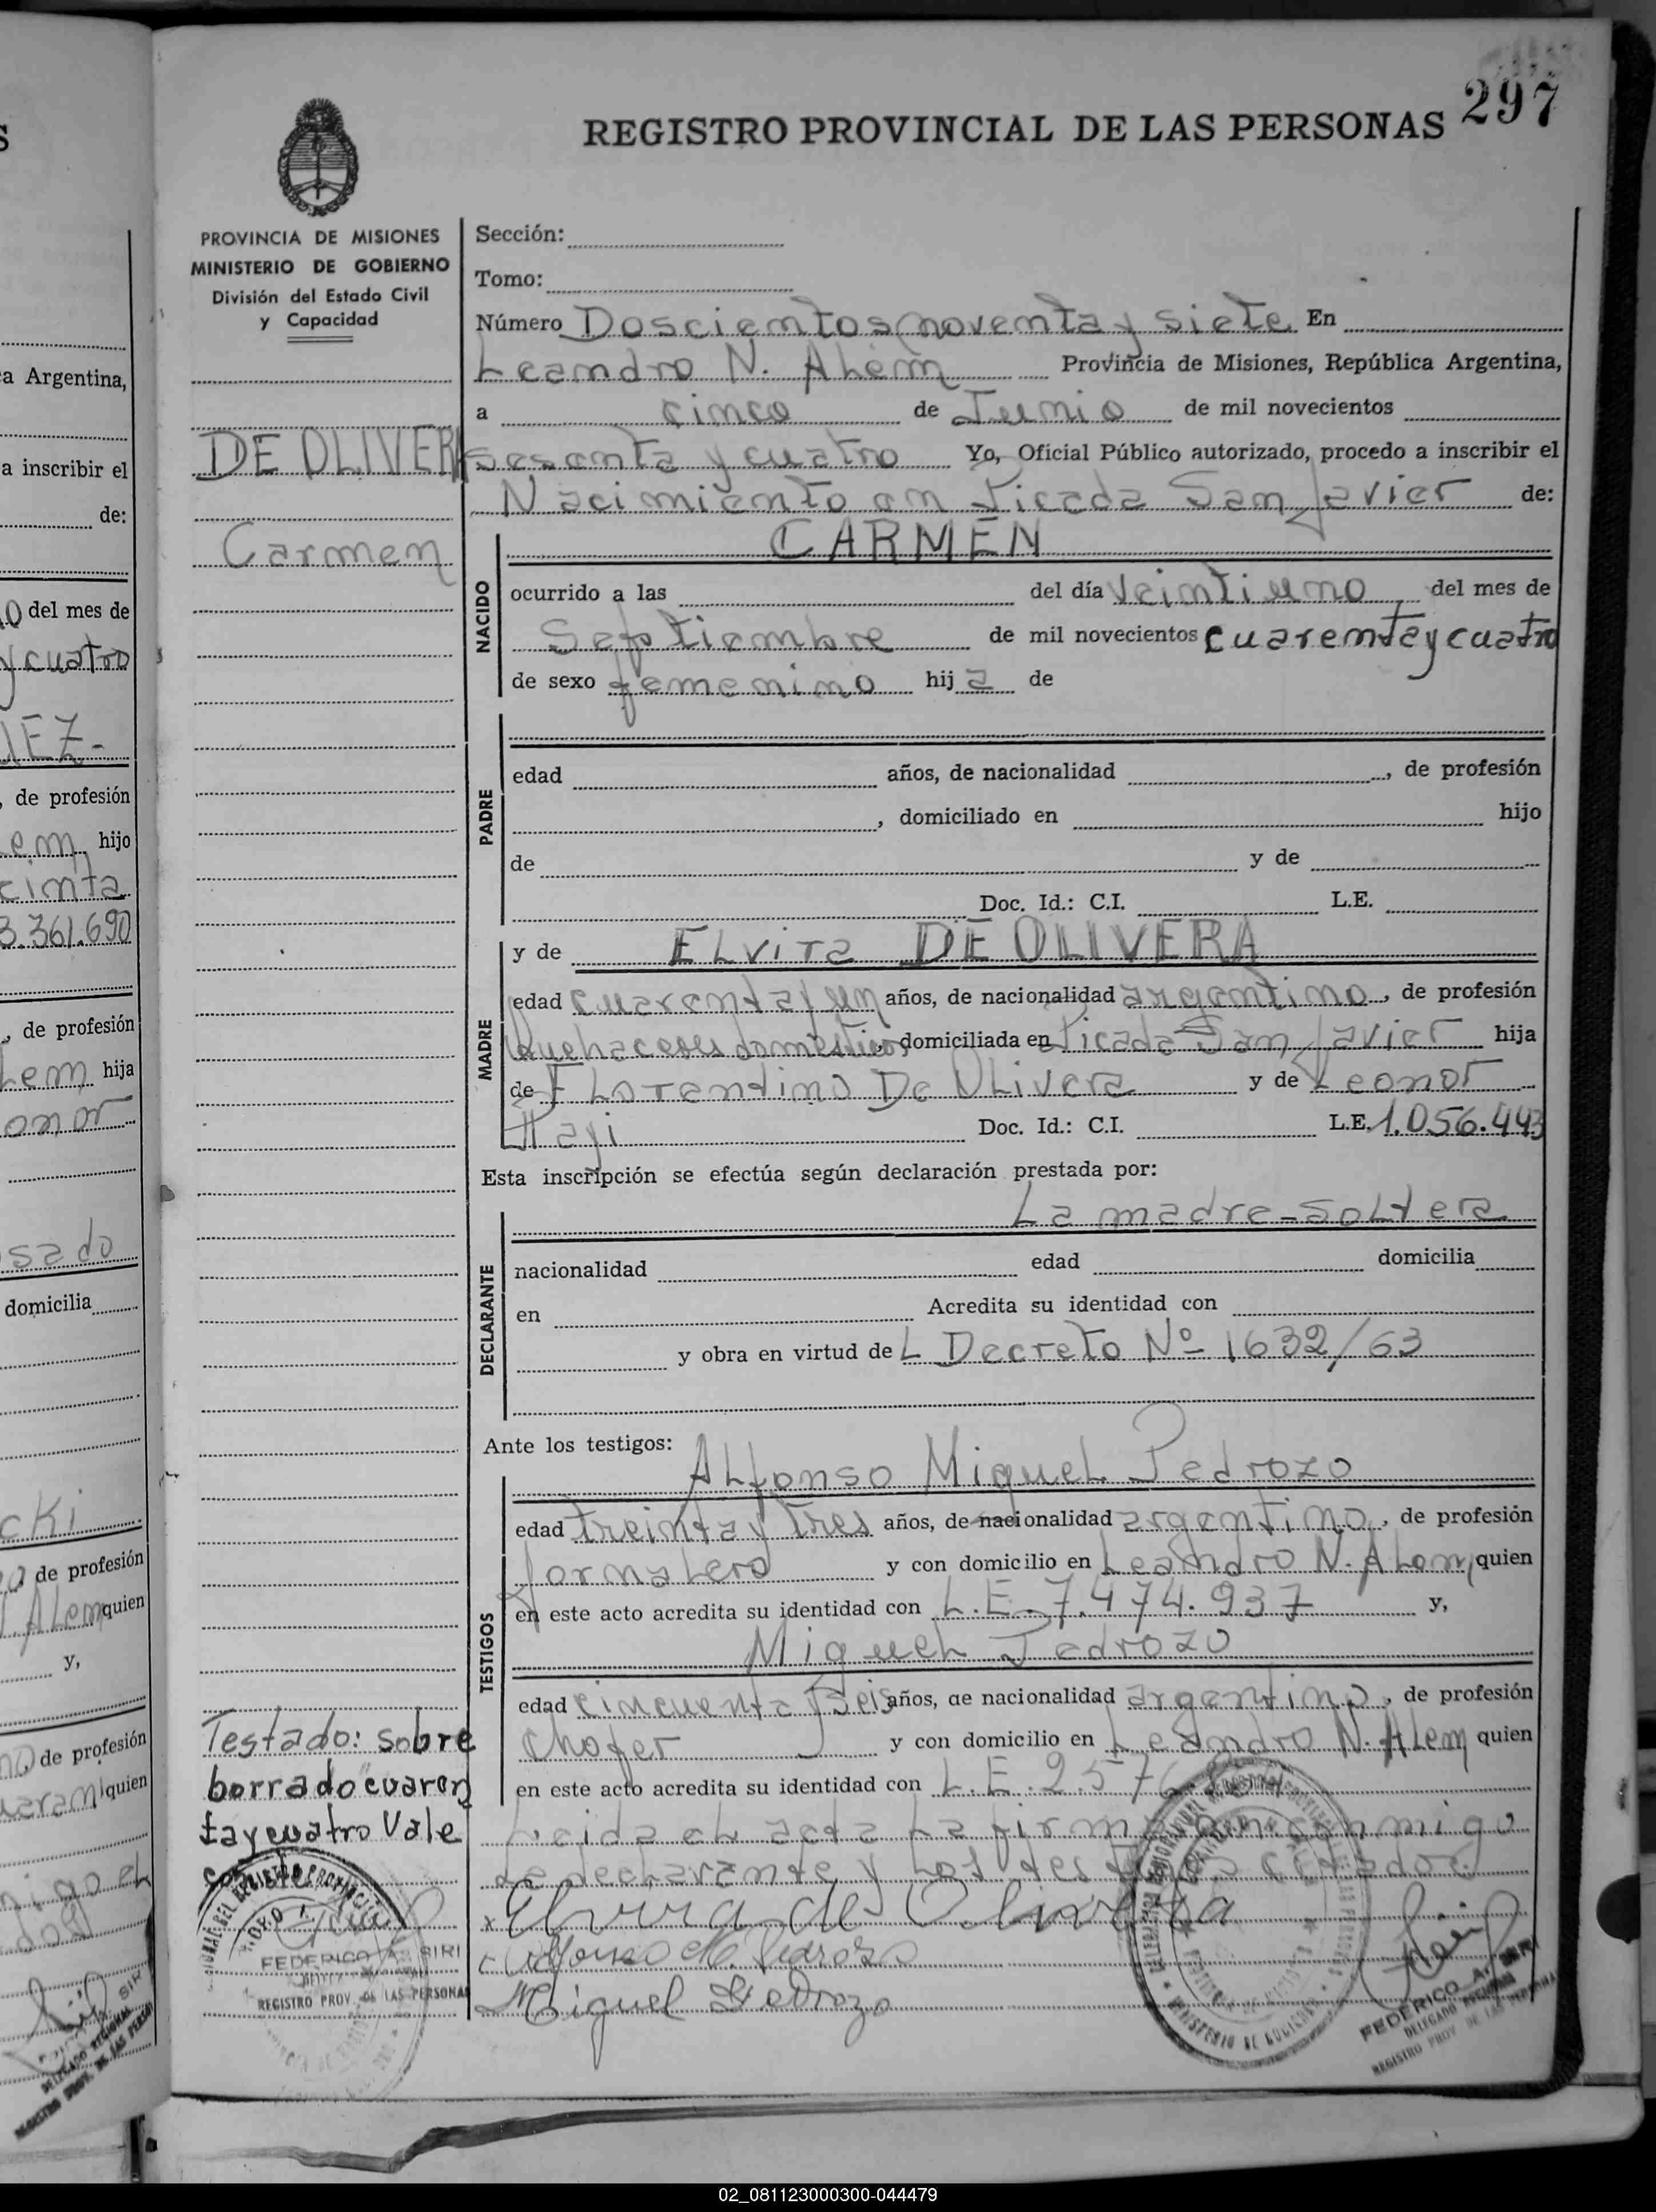 297
REGISTRO PROVINCIAL DE LAS PERSONAS
PROVINCIA DE MISIONES
MINISTERIO DE GOBIERNO
División del Estado Civil
y Capacidad
DE OLIVERA
Carmen
Sección:
Tomo:
Número Doscientos noventa y siete En
Leandro N. ALem Provincia de Misiones, República Argentina,
a cinco de Junio de mil novecientos
sesenta y cuatro Yo, Oficial Público autorizado, procedo a inscribir el
Nacimiento en Picada San Javier de:
NACIDO
CARMEN
ocurrido a las del día veintiuno del mes de
Septiembre de mil novecientos cuarentaycuatro
de sexo femenino hija de
PADRE
edad años, de nacionalidad , de profesión
, domiciliado en hijo
de y de
Doc. Id.: C.I. L.E.
MADRE
y de ELvira DE OLIVERA
edad cuarenta y un años, de nacionalidad argentino, de profesión
quehaceres domesticos, domiciliada en Picada San Javier hija
de FLorentino De OLivera y de Leonor
Doc. Id.: C.I. L.E. 1.056.443
Esta inscripción se efectúa según declaración prestada por:
DECLARANTE
La madre-soLtera
nacionalidad edad domicilia
en Acredita su identidad con
y obra en virtud deL Decreto Nº 1632/63
Ante los testigos:
TESTIGOS
ALfonso MigueL Pedrozo
edad treinta y tres años, de nacionalidad argentino, de profesión
jornaLero y con domicilio en Leandro N. ALem, quien
en este acto acredita su identidad con L.E. 7.474.937 y,
MigueL Pedrozo
edad cincuenta y seis años, de nacionalidad argentino, de profesión
chofer y con domicilio en Leandro N. ALem quien
en este acto acredita su identidad con L.E. 2.576.
Leida eL acta La firma conmigo
La decLarante y Los testigos citados
Elvira de Olivera
Alfonso M. Pedrozo
Miguel Pedrozo
Testado: sobre
borrado "cuaren
taycuatro Vale
FEDERICO A. SIRI
REGISTRO PROV. DE LAS PERSONAS
FEDERICO A. SIRI
DELEGADO REGIONAL
REGISTRO PROV. DE LAS PERSONAS
S
a Argentina,
a inscribir el
de:
del mes de
y cuatro
de profesión
hijo
3.361.690
, de profesión
Lem hija
domicilia
de profesión
ALem quien
y,
de profesión
quien
02_081123000300-044479